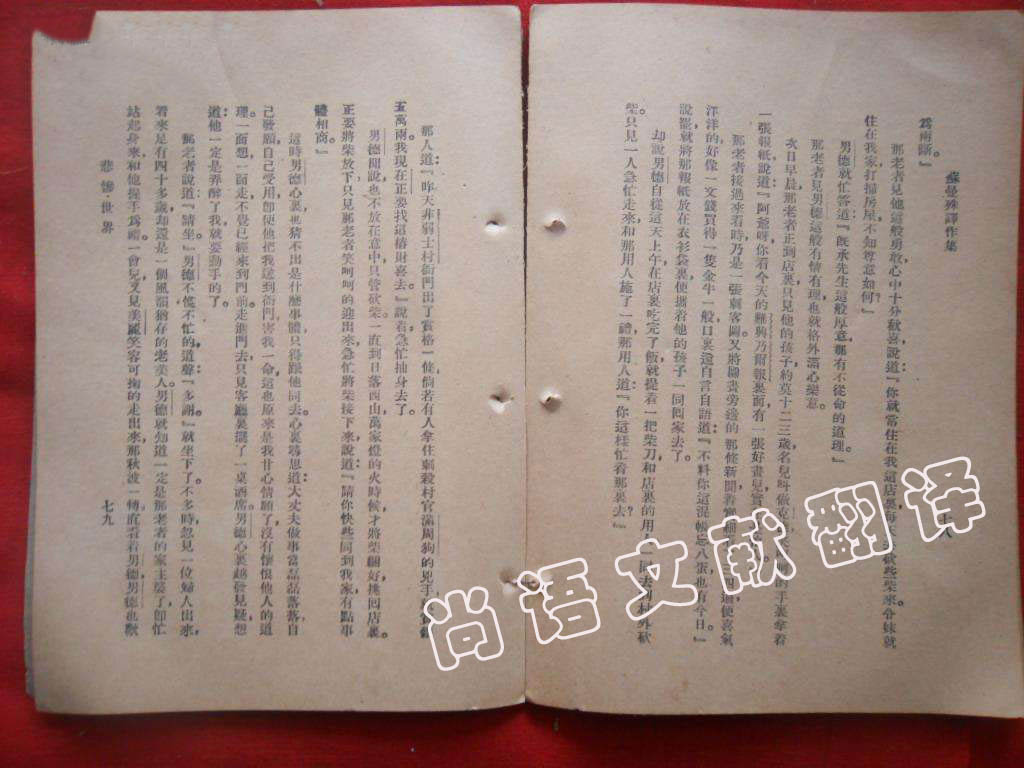 蘇曼殊譯作集
為兩斷。』
那老者見他這般勇敢心中十分歡喜說道『你就常住在我這店裏每
些柴來介妹就
住在我家打掃房屋不知尊意如何?』
男德就忙答道『旣承先生這般厚意那有不從命的道理。』
那老者見男德這般有情有理也就格外滿心樂意。
次日早晨那老者正到店裏只見他的孩子約莫十二三歲名兒叫做克
的手裏拿着
一張報紙說道『阿爺呀你看今天的難興乃爾報裏面有一張好畫兒實
那老者接過來看時乃是一張刺客圖又將圖畫旁邊的那條新聞看
三四
便喜氣
洋洋的好像一文錢買得一隻金牛一般口裏還自言自語道『不料你這混帳忘八蛋也有今日』
說罷就將那報紙放在衣衫袋裏便攜着他的孩子一同回家去了。
却說男德自從這天上午在店裏吃完了飯就提着一把柴刀和店裏的用人一同去到村外砍
柴。只見一人急忙走來和那用人施了一禮那用人道:『你這樣忙着那裏去?』
那人道:『昨天非弱士村衙門出了賞格一條倘若有人拿住刺殺村官滿周狗的兇手
五萬兩。我現在正要找這樁財喜去』說着急忙抽身去了。
男德聞說也不放在意中只管砍柴。一直到日落西山萬家燈的火時候才將柴綑好挑回店裏。
正要將柴放下只見那老者笑呵呵的迎出來急忙將柴接下來說道:『請你快些同到我家有點事
體相商。』
這時男德心裏也猜不出是什麽事體只得跟他同去心裏尋思道大丈夫做事當磊磊落落自
己發願自己受用卽使他把我送到衙門害我一命這也原來是我甘心情願了沒有懷恨他人的道
理。一面想一面走不覺已經來到門前走進門去只見客廳裏擺了一桌酒席男德心裏越發見疑想
道:他一定是弄醉了我就要動手的了。
那老者說道『請坐』男德不慌不忙的道聲『多謝』就坐下了。不多時忽見一位婦人出來
看來足有四十多歲却還是一個風韻猶存的老美人男德就知道一定是那老者的家主婆了卽忙
站起身來和他握手為禮一會兒又見美麗笑容可掬的走出來那秋波一轉直看着男德男德也歡
悲慘世界
七九
尚语文献翻译